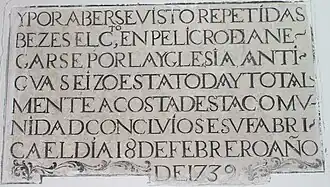 Y POR ABERSE VISTO REPETIDAS
BEZES EL CTO, EN PELICRO D ANE
GARSE POR LA YGLESIA ANTI
GVA SE IZO ESTA TODA Y TOTAL
MENTE A COSTA DE STA COMV
NIDAD CONCLVIOSE SV FABRI
CA EL DÍA 18 DE FEBRERO AÑO
DE 1739